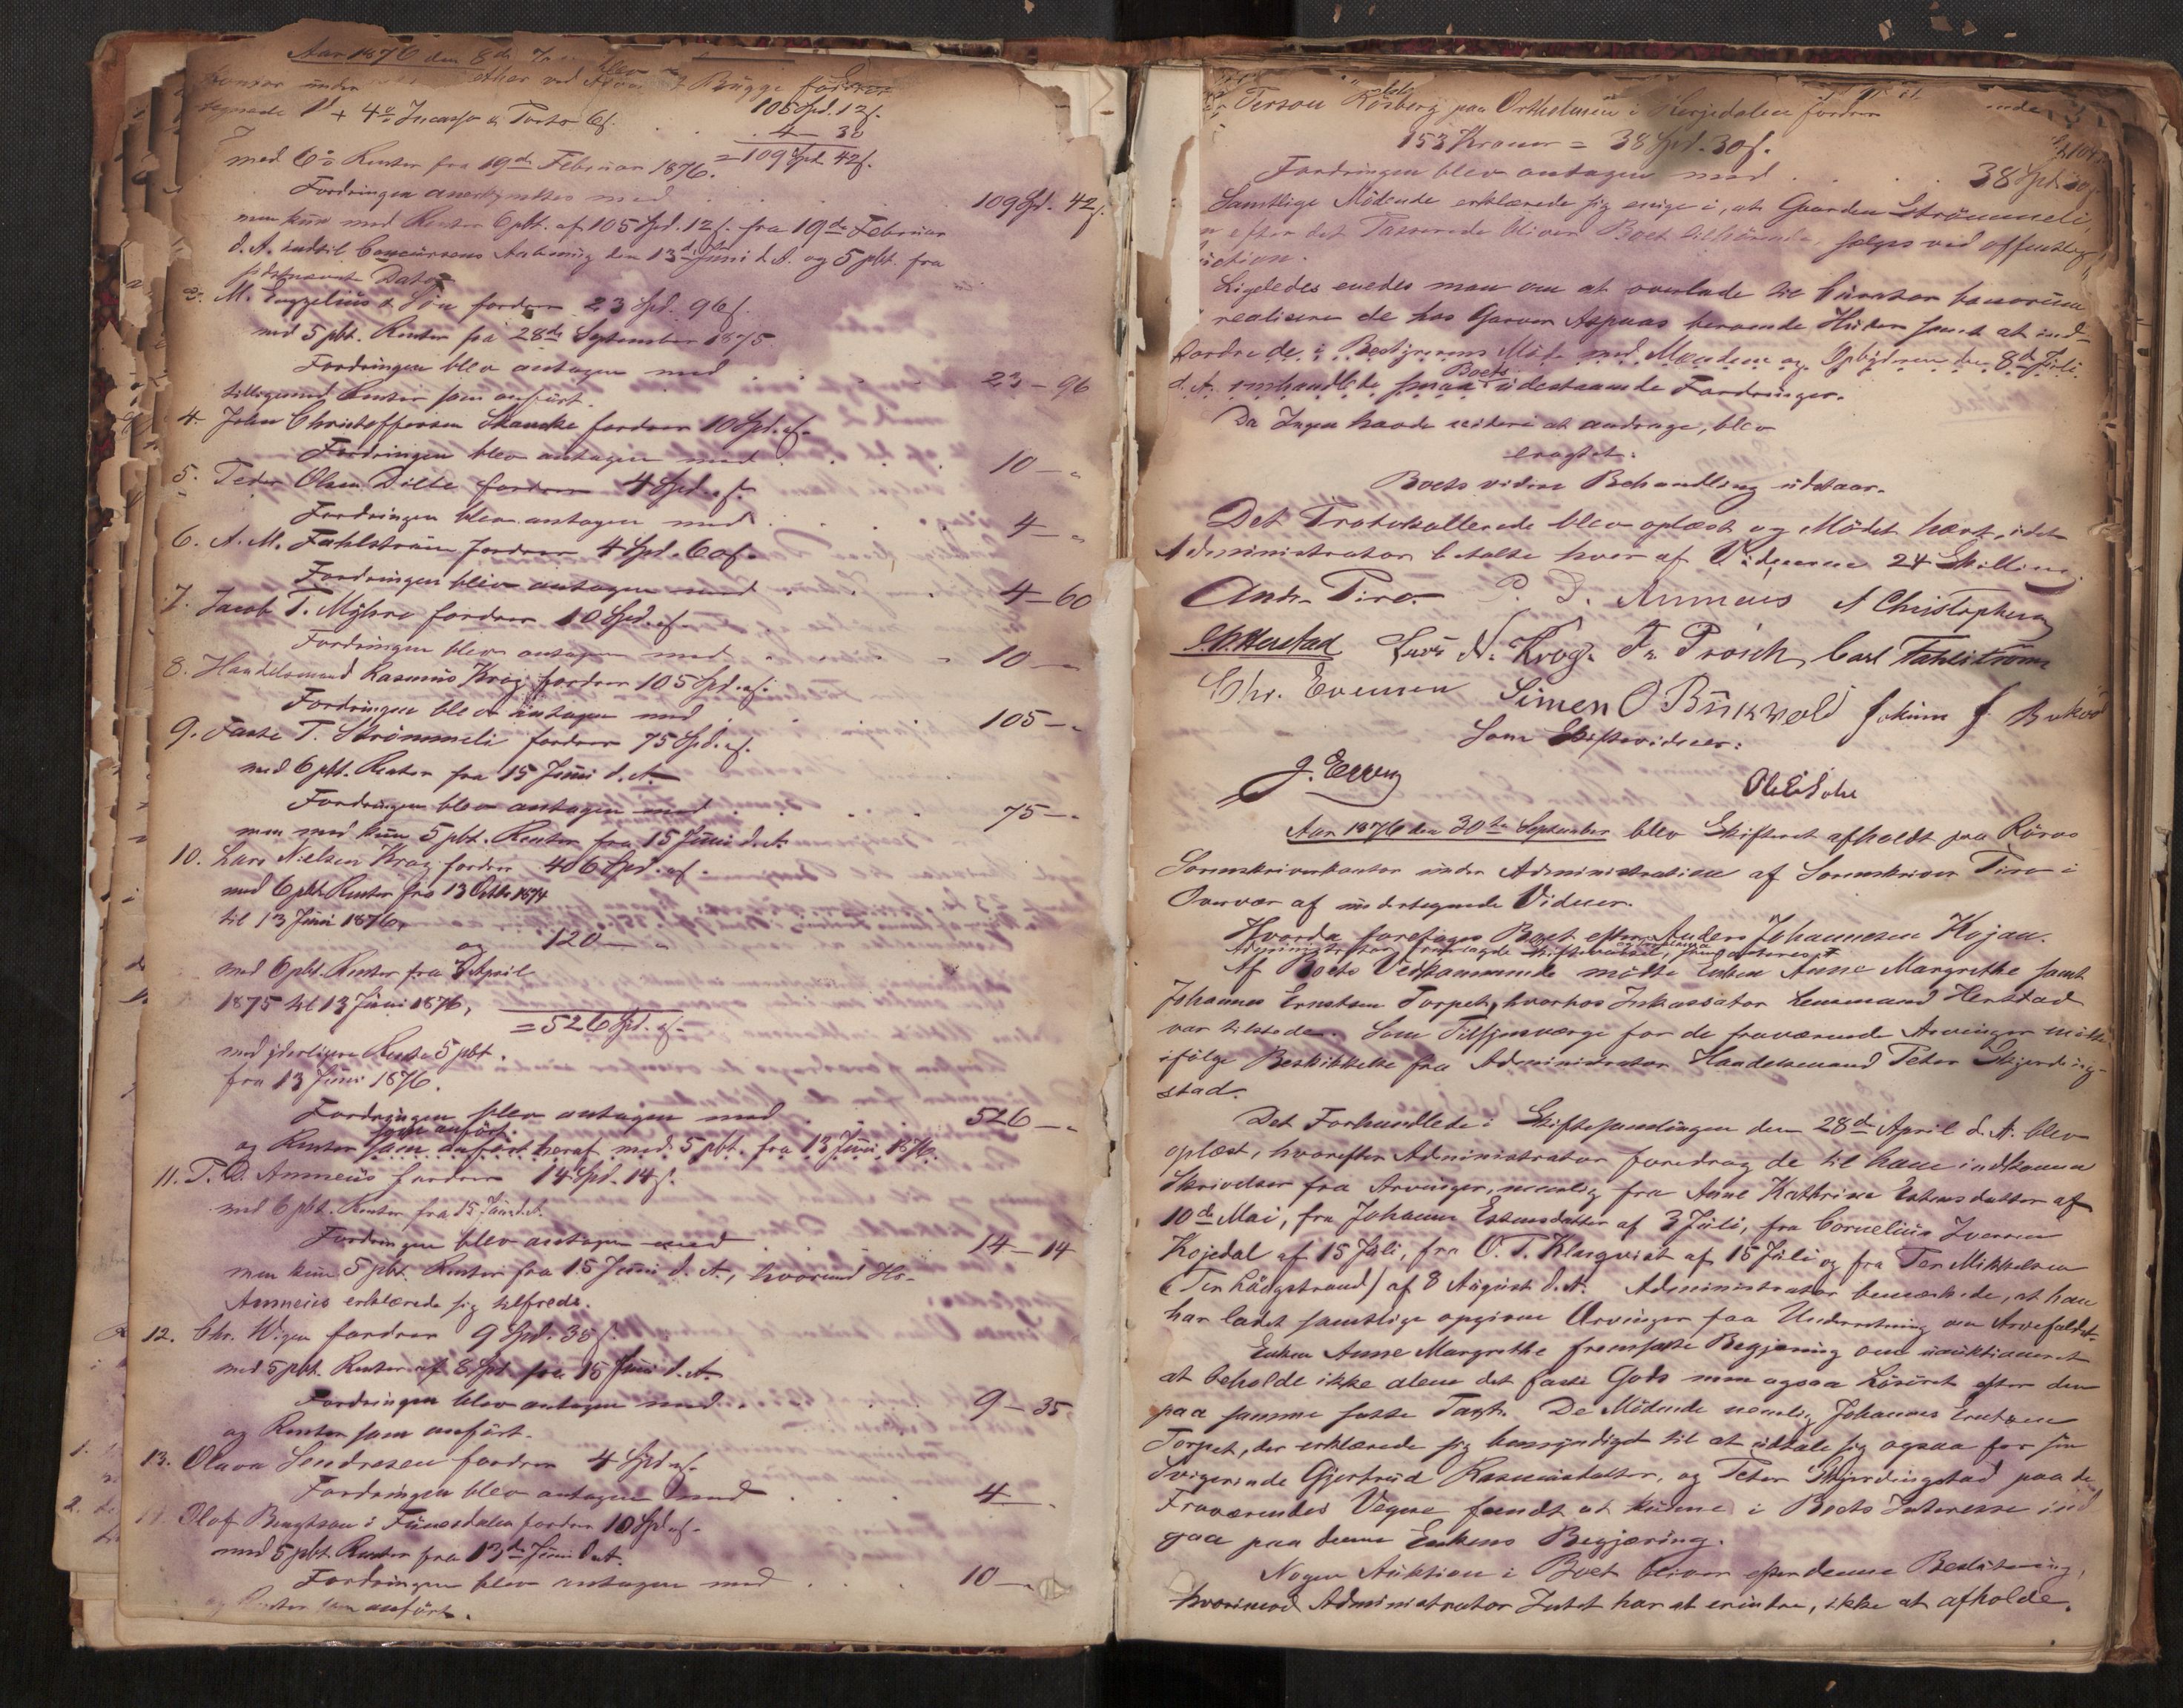 Aar 1876 den 8de
under ved Bügge fordrer
tegnede 1d + 4 o Incasso & Porto 6f. 105 Spd. 12f.
4 - 30
= 109 Spd. 42f.
med 6% Renter fra 19de Februar 1876.
Fordringen anerkjendtes med . . . 109 Spd. 42f.
men kün med Renter 6 pCt. af 105 Spd. 12f. fra 19de Februar
d. A. indtil Concürsens Aabning den 13de Jüni d. A. og 5 pCt. fra
sidstnævnte Dato
3. M. Engzelius & Søn fordrer 23 Spd. 96f.
med 5 pCt. Renter fra 28de September 1875.
Fordringen blev antagen med . . . 23 - 96
tilligemed Renter som anført.
4. John Christoffersen Skancke fordrer 10 Spd. „f.
Fordringen blev antagen med . . . 10 - „
5. Peder Olsen Dille fordrer 4 Spd. „f.
Fordringen blev antagen med . . . 4 - „
6. A. M. Fahlstrøm fordrer 4 Spd. 60f.
Fordringen blev antagen med . . . 4 - 60
7. Jacob T. Myhre fordrer 10 Spd. „f.
Fordringen blev antagen med . . . 10 - „
8. Handelsmand Rasmus Krog fordrer 105 Spd. „f.
Fordringen blev antagen med . . . 105 - „
9. Faste T. Strømmeli fordrer 75 Spd. „f.
med 6 pCt. Renter fra 15 Jüni d. A.
Fordringen blev antagen med . . . 75 - „
men med kün 5 pCt. Renter fra 15 Jüni d. A.
10. Lars Nielsen Krog fordrer 406 Spd. „f.
med 6 pCt. Renter fra 13 Octbr 1874
til 13 Jüni 1876,
og 120 - „
med 6 pCt. Renter fra 3 April
1875 til 13 Jüni 1876,
= 526 Spd. „f.
med yderligere Rente 5 pCt.
fra 13 Jüni 1876.
Fordringen blev antagen med . . . 526 - „
som anført.
og Renter som anført heraf med 5 pCt. fra 13 Jüni 1876.
11. P. D. Anneüs fordrer 14 Spd. 14f.
med 6 pCt. Renter fra 15 Jüni d. A.
Fordringen blev antagen med . . . 14 - 14
men kün 5 pCt. Renter fra 15 Jüni d. A., hvormed Hr.
Anneüs erklærede sig tilfreds.
12. Chr. Wigen fordrer 9 Spd. 35f.
med 5 pCt. Renter af 8 Spd. fra 15 Jüni d. A.
Fordringen blev antagen med . . . 9 - 35
og Renter som anført.
13. Olava Sendresen fordrer 4 Spd. „f.
Fordringen blev antagen med . . . 4 - „
Olof Bengtson i Fünesdalen fordrer 10 Spd. „f.
med 5 pCt. Renter fra 13de Jüni d. A.
Fordringen blev antagen med . . . 10 - „
og Renter som anført.
Person Rösberg paa Ortholmen i Herjedalen fordrer
153 Kroner = 38 Spd. 30f.
Fordringen blev antagen med . . . 38 Spd. 30f.
Samtlige Mødende erklærede sig enige i, at Gaarden Strømmeli,
efter det Passerede bliver Boet tilhørende, sælges ved offentlig
Auction.
Ligeledes enedes man om at overlade til Cürator bonorüm
realisere de hos Garver Aspaas beroende Hüder samt at ind-
fordre de i Bestyrerens Møde med Manden og Opbyderen den 8de Jüli
d. A. omhandlede smaa Boets üdestaaende Fordringer.
Da Ingen havde videre at andrage, blev
eragtet:
Boets videre Behandling üdstaar.
Det Protokollerede blev oplæst og Mødet hævt, idet
Administrator betalte hver af Vidnerne 24 Skilling.
Anh. Piro. P. D. Anneüs A Christophersen
Herstad Lars N. Krog. Fr. Prösch, Carl Fahlstrøm
Chr. Evensen Simen O Bükvold Jokum J. Bukvold
Som Skiftevidner:
J. Ewen Ole
Aar 1876 den 30te September blev Skifteret afholdt paa Röros
Sorenskriverkontor ünder Administration af Sorenskriver Piro i
Overvær af undertegnede Vidner.
Hvorda foretoges Boet efter Anders Johannesen Kojan.
Administrator fremlagde
Af Boets Vedkommende mødte Enken Anne Margrethe samt
Johannes Erntsen Torpet, hvorhos Inkassator Lensmand Herstad
var tilstede. Som Tilsynsværge for de fraværende Arvinger mødte
ifølge Beskikkelse fra Administrator Handelsmand Peter Skjerding-
stad.
Det Forhandlede i Skiftesamlingen den 28de April d. A. blev
oplæst, hvorefter Administrator foredrog de til ham indkomne
Skrivelser fra Arvinger, nemlig fra Anne Kathrine Estensdatter af
10de Mai, fra Johanne Estensdatter af 3 Jüli, fra Cornelius Iversen
Kojedal af 15 Jüli, fra O. T. Klingvist af 15 Jüli og fra Per Mikkelsen
(Per Långstrand) af 8 Aügust d. A. Administrator bemærkede, at han
har ladet samtlige opgivne Arvinger faa Underretning om Arvefaldet.
Enken Anne Margrethe fremsatte Begjæring om üauktioneret
at beholde ikke alene det faste Gods men ogsaa Løsöret efter den
paa samme satte Taxt. De Mødende nemlig Johannes Erntsen
Torpet, der erklærede sig bemyndiget til at üdtale sig ogsaa for sin
Svigerinde Gjertrüd Rasmüsdatter, og Peter Skjerdingstad paa de
Fraværendes Vegne fandt at künne i Boets Interesse ind-
gaa paa denne Enkens Begjæring.
Nogen Aüktion i Boet bliver efter denne Beslütning,
hvorimod Administrator Intet har at erindre, ikke at afholde.